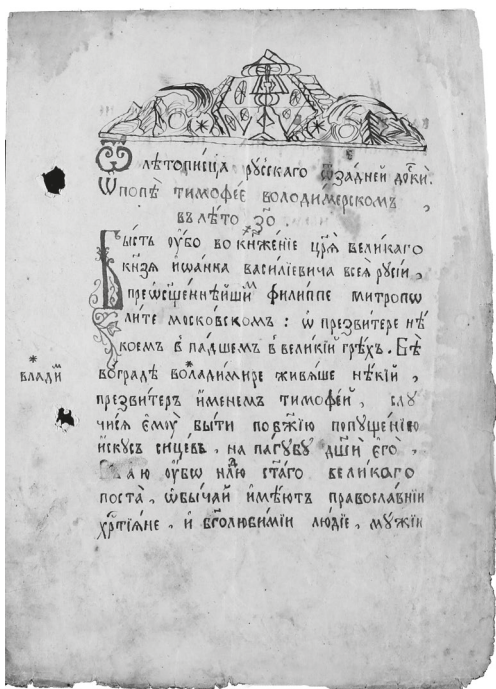 Ѿ лѣтописца русскаго ѿ задней доски.
Ѡ попѣ тимофеѐ володимерскомъ,
въ лѣто ҂зо.
Бысть ᲂу҆́бо во кн҃женіе цр҃я великаго
кн҃зя и҆ѡанна василіевича всея̀ русіи,
преѡсщ҃еннѣйшїй филиппѐ митропо
лите московскомъ: ѡ҆ презвитере нѣ
коемъ в̾ падшемъ в̾ великїй грѣхъ. Бѣ
влади*
во градѣ володимире живяше нѣкїй,
презвитеръ и҆менемъ тимофе́й, слу
чися є҆моу̀ быти по бж҃їю попущенїю
и҆скусъ сицевъ, на па́губу дш҃и є҆гѡ̀.
ᲂу҆́бѡ ст҃аго великаго
поста, ѡ҆бычай и҆мѣютъ православнїи
хр҃тїяне, и҆ бг҃олюбимїи людїе, мужїи